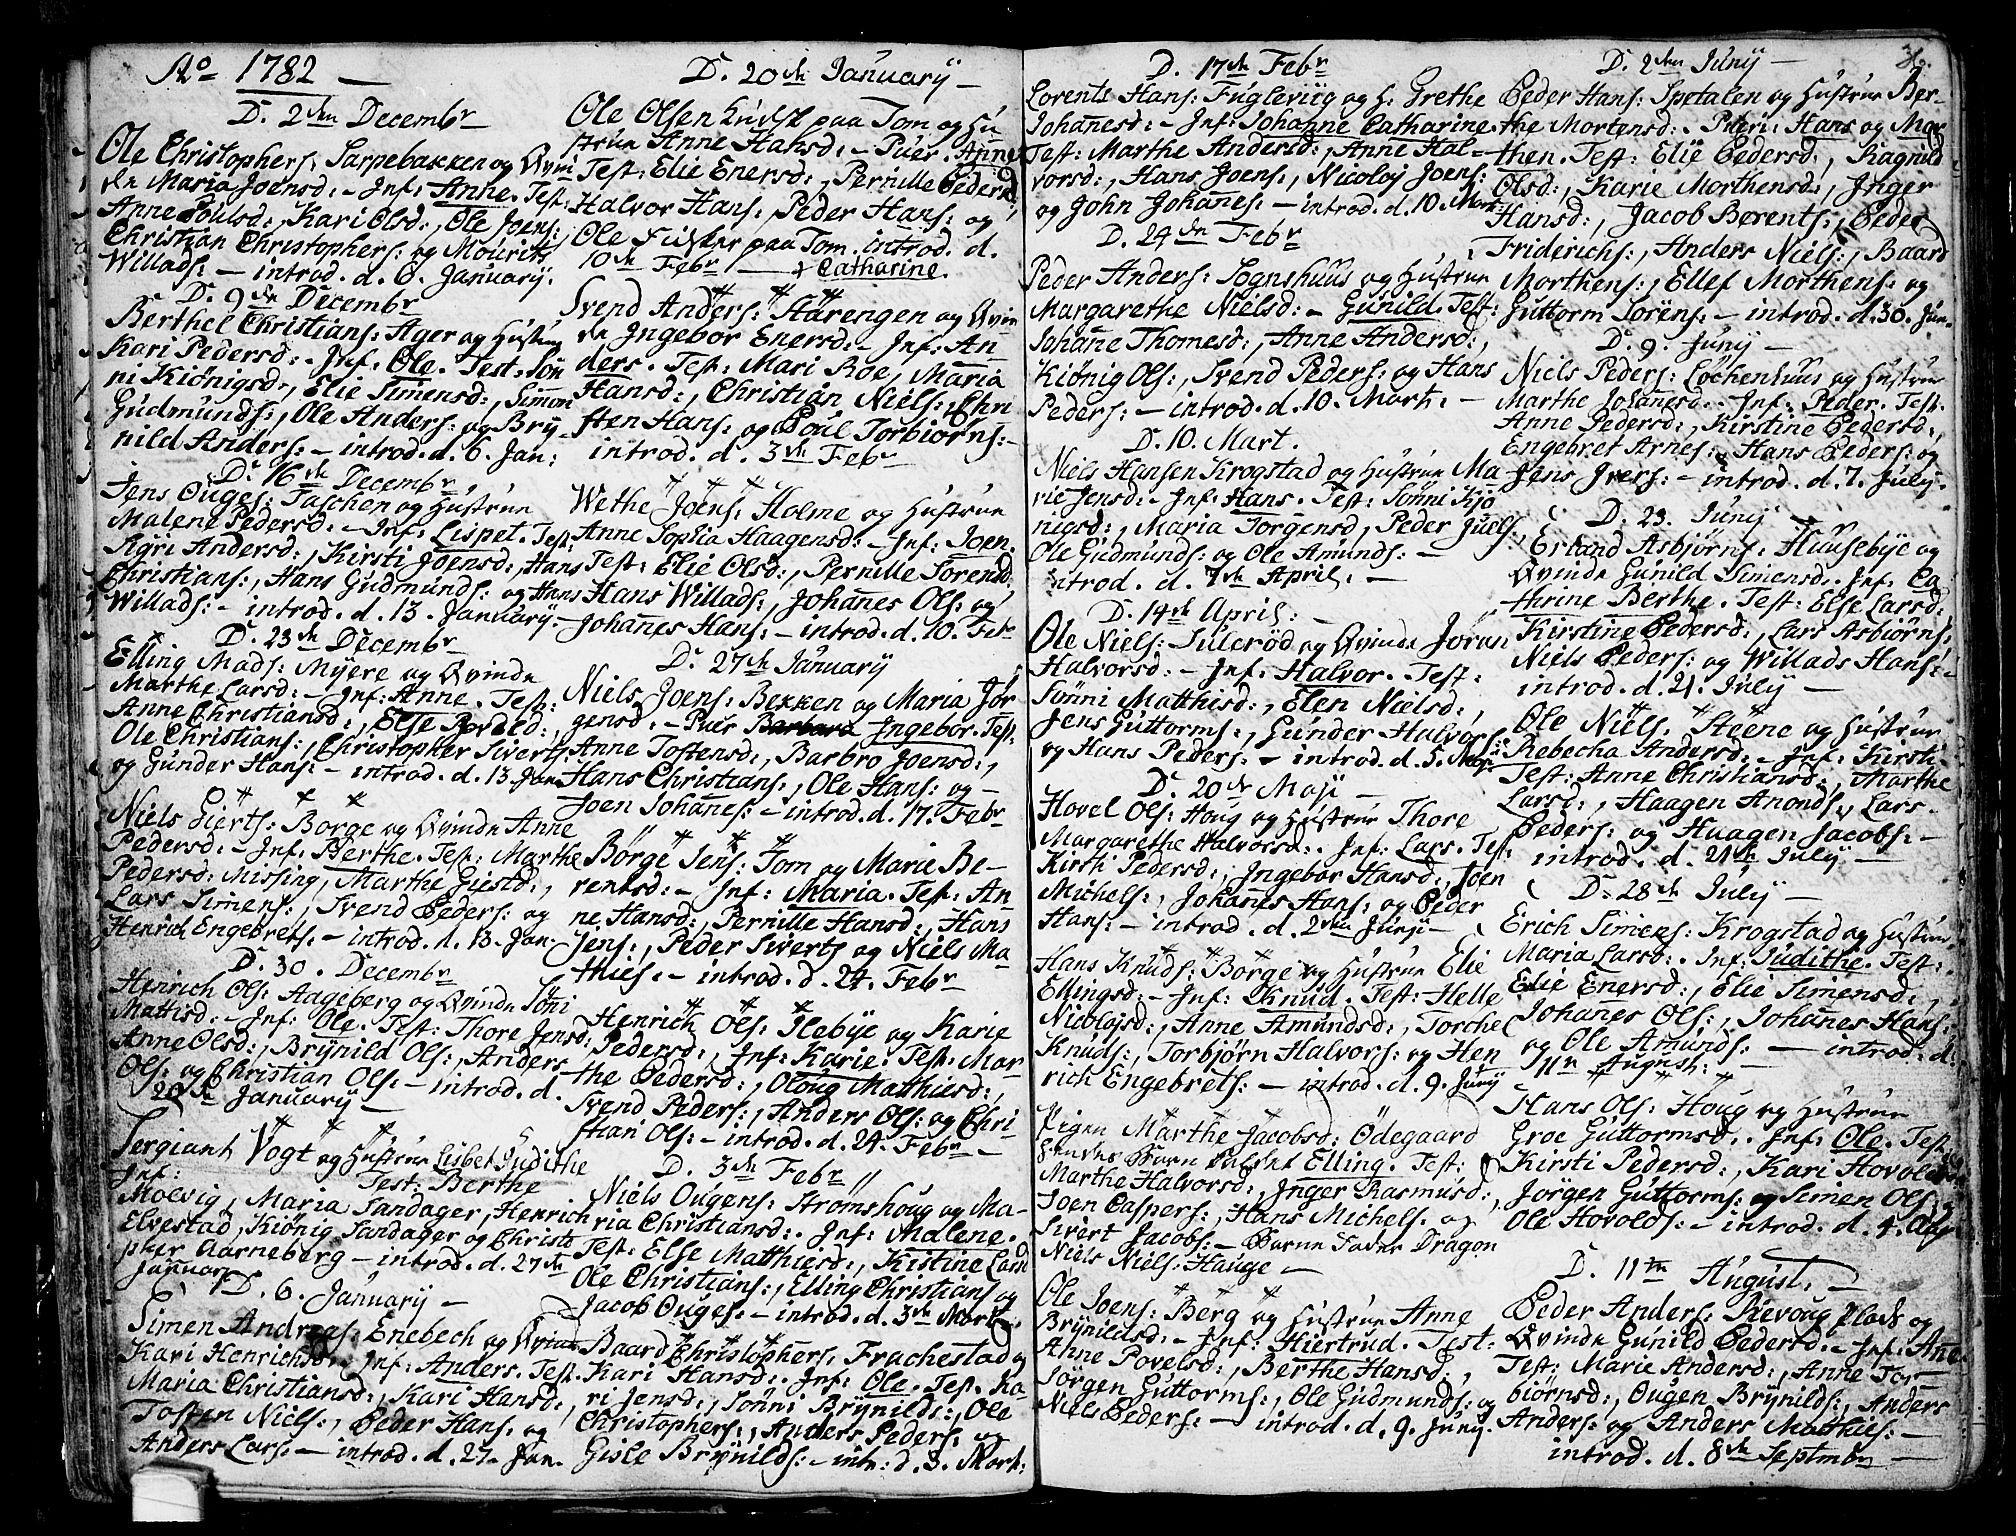 Ao 1782 —
D. 2den Decembr
Ole Christophers: Sarpebakken og Qvin
de Maria Joensd: - Inf: Anne. Test:
Anne Poulsd:, Kari Olsd:, Ole Joens:
Christian Christophers: og Mourits
Willads: - introd. d. 6. Januarÿ.
D. 9de Decembr
Berthel Christians: Ager og Hustru
Kari Pedersd: - Inf: Ole. Test: Søn
ni Kiönigsd:, Elie Simensd:, Simon
Gudmunds:, Ole Anders: og Brÿ-
nild Anders: - introd. d. 6. Jan:
D. 16de Decembr
Jens Ouges: Taschen og Hustrue
Malene Pedersd: - Inf: Lispet. Test:
Sigri Andersd:, Kirsti Joensd:, Hans
Christians:, Hans Gudmunds: og Hans
Willads: - introd. d. 13. Januarÿ.
D. 23de Decembr
Elling Mads: Myere og Qvinde
Marthe Larsd: - Inf: Anne. Test:
Anne Christiansd:, Else
Ole Christians:, Christopher Siverts:
og Gunder Hans: - introd. d. 13. Jan
Niels Gierts: Borge og Qvinde Anne
Pedersd: - Inf: Berthe. Test: Marthe
Pedersd: Missing, Marthe Giestd:,
Lars Simens:, Svend Peders: og
Henrich Engebrets: - introd. d. 13. Jan.
D. 30. Decembr
Henrich Ols: Aageberg og Qvinde Söni
Mattisd: - Inf: Ole. Test: Thore Jensd:
Anne Olsd:, Brÿnild Ols:, Anders
Ols: og Christian Ols: - introd. d.
20de Januarÿ —
Sergiant Vogt og Hustrue Lisbet Judithe
Inf: Test: Berthe
Molvig, Maria Sandager, Henrich
Elvestad, Kiönig Sandager og Christo
pher Aarneberg - introd. d. 27de
Januarÿ
D. 6. Januarÿ —
Simen Andreas: Enebech og Qvinde
Kari Henrichsd: - Inf: Anders. Test.
Maria Christiansd:, Kari Hansd:,
Tosten Niels:, Peder Hans: og
Anders Lars: - introd. d. 27. Jan.
D. 20de Januarÿ —
Ole Olsen paa Tom og Hu
strue Anne Hansd: - Puer. Anne
Test: Elie Enersd:, Pernille Pedersd:,
Halvor Hans:, Peder Hans: og
Ole Fisker paa Tom. introd. d.
10de Febr — + Catharine.
Svend Anders: Haarengen og Qvin
de Ingebor Enersd: - Inf: An
ders. Test: Mari Roe, Maria
Hansd:, Christian Niels:, Chri-
sten Hans: og Poul Torbiörns: -
introd. d. 3de Febr
Wethe Joens: Holme og Hustrue
Anne Sophia Haagensd: - Inf: Joen.
Test: Elie Olsd:, Pernille Sorensd:
Hans Willads:, Johanes Ols: og
Johanes Hans: - introd. d. 10. Febr
D. 27de Januarÿ
Niels Joens: Bekken og Maria Jör
gensd: - Puer Barbara Ingebor. Test:
Anne Tostensd:, Barbro Joensd:,
Hans Christians:, Ole Hans: og -
Joen Johanes: - introd. d. 17. Febr
Börge Jens: Tom og Marie Be-
rentsd: - Inf: Maria. Test: An
ne Hansd:, Pernille Hansd:, Hans
Jens:, Peder Siverts: og Niels Ma
thies: - introd. d. 24. Febr
Henrich Ols: Ilebÿe og Karie
Pedersd:, Inf: Karie. Test: Mar-
the Pedersd:, Oloug Matthiesd:,
Svend Peders:, Anders Ols: og Chri-
stian Ols: - introd. d. 24. Febr —
D. 3de Febr
Niels Ougens: Stromshoug og Ma-
ria Christiansd: Inf: Malene.
Test: Else Matthiesd:, Kistine Larsd
Ole Christians:, Elling Christians: og
Jacob Ouges: - introd. d. 3de Mart.
Baard Christophers: Frachestad og
Kari Hansd: Inf: Ole. Test: Ka
ri Jensd:, Sønni Brÿnilds:, Ole
Christophers:, Anders Peders: og
Gisle Brÿnilds: - intr: d. 3. Mart:
D. 17de Febr
Lorents Hans: Fugleviig og H: Grethe
Johanesd: - Inf: Johanne Catharine.
Test: Marthe Andersd:, Anne Hal-
vorsd:, Hans Joens:, Nicoloÿ Joens:
og John Johanes: - introd. d. 10. Mart:
D. 24de Febr
Peder Anders: Sognshuus og Hustrue
Margarethe Nielsd: - Gunild. Test:
Johane Thomesd:, Anne Andersd:,
Kiönig Ols:, Svend Peders: og Hans
Peders: - introd. d. 10. Mart: -
D. 10. Mart.
Niels Hansen Krogstad og Hustrue Ma
rie Jensd: - Inf: Hans. Test: Sønni Kjø
nigsd:, Maria Jorgensd, Peder Juels:,
Ole Gudmunds: og Ole Amunds: —
introd. d. 7de April: —
D. 14de April: —
Ole Niels: Julerød og Qvinde Jøran
Halvorsd: - Inf: Halvor. Test:
Sønni Matthisd:, Elen Nielsd:,
Jens Guttorms:, Gunder Halvors:
og Hans Peders: - introd. d. 5. Maji
D. 20de Maji —
Hovel Ols: Houg og Hustrue Thore
Margarethe Halvorsd: Inf: Lars. Test
Kirsti Pedersd:, Ingebor Hansd:, Joen
Michels:, Johanes Hans: og Peder
Hans: - introd. d. 2den Junÿ -
Hans Knuds: Børge og Hustrue Elie
Ellingsd: - Inf: Knud. Test: Helle
Nicolajsd:, Anne Amundsd:, Torchel
Knuds:, Torbjörn Halvors: og Hen
rich Engebrets: - introd. d. 9. Junÿ
Pigen Marthe Jacobsd: Ödegaard
hendes Barn kaldet Elling. Test:
Marthe Halvorsd:, Inger Rasmusd:,
Joen Caspers:, Hans Michels: og
Sivert Jacobs: - Barne Fader Dragon
Niels Niels: Hauge —
Ole Joens: Berg og Hustrue Anne
Brÿnildsd: - Inf: Hiertrud. Test:
Anne Povelsd:, Berthe Hansd:,
Jorgen Guttorms:, Ole Gudmunds: og
Niels Peders: - introd. d. 9. Junÿ.
36.
D. 2den Junÿ —
Peder Hans: Spetalen og Hustrue Ber-
the Mortensd: - Pueri: Hans og Mor
then. Test: Elie Pedersd:, Ragnild
Olsd:, Karie Morthensd:, Inger
Hansd:, Jacob Berents:, Peder
Friderichs:, Anders Niels:, Baard
Morthens:, Ellef Morthens: og
Guttorm Sörens: - introd. d. 30. Jun.
D. 9. Junÿ —
Niels Peders: Lochenhuus og Hustrue
Marthe Johanesd: - Inf: Peder. Test.
Anne Pedersd:, Kirstine Pedersd:,
Engebret Arnes:, Hans Peders: og
Jens Ivers: - introd. d. 7. Julÿ.
D. 23. Junÿ —
Erland Asbjørns: Huusebÿe og
Qvinde Gunild Simensd: Inf: Ca
thrine Berthe. Test: Else Larsd:
Kirstine Pedersd:, Lars Asbiørns:
Niels Peders: og Willads Hans: -
introd. d. 21. Julÿ —
Ole Niels: Steene og Hustrue
Rebecha Andersd: - Inf: Kirsti-
Test: Anne Christiansd:, Marthe
Larsd:, Haagen Anonds:, Lars
Peders: og Haagen Jacobs: -
introd. d. 21de Julÿ —
D. 28de Julÿ —
Erich Simens: Krogstad og Hustrue
Maria Larsd: Inf: Judithe. Test:
Elie Enersd:, Elie Simensd:,
Johanes Ols:, Johanes Hans:
og Ole Amunds: — introd. d.
11te August: —
Hans Ols: Houg og Hustrue
Groe Guttormsd: Inf: Ole. Test
Kirsti Pedersd:, Kari Hovolds
Jorgen Guttorms: og Simen Ols: og
Ole Hovolds: - introd. d. 4. Aug
D. 11te August. —
Peder Anders: Revoug Plads og
Qvinde Gunild Pedersd: - Inf: Ane
Test: Marie Andersd:, Anne Tor-
biörnsd:, Ougen Brÿnilds:, Anders
Anders: og Anders Mathies: -
introd. d. 8de Septembr —